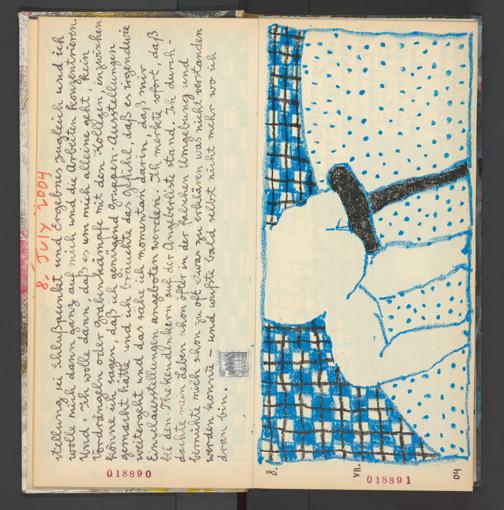 8. JULY 2004
stellung sei Schlußpunkt und Ergebnis zugleich und ich
wolle mich dann ganz auf mich und die Arbeiten konzentrieren.
Und: ich wolle dann, daß es um mich alleine geht. Kein
Vordrängeln oder Grabenkämpfe mit den Kollegen, inzwischen
könne ich sagen, daß ich genügend Gruppen-Ausstellungen
gemacht hätte und ich bräuchte das Gefühl, daß es irgendwie
weitergeht und das sähe ich momentan darin, daß mir
Einzelausstellungen angeboten werden. Ich merkte sofort, daß
bei den
auf der
stand. Ich durch-
dachte mein Leben schon öfter in der falschen Umgebung und
bemühte mich schon zu oft etwas zu erklären was nicht verstanden
werden konnte - und wußte bald selbst nicht mehr wo ich
dran bin.
018890
8.
VII.
04
018891